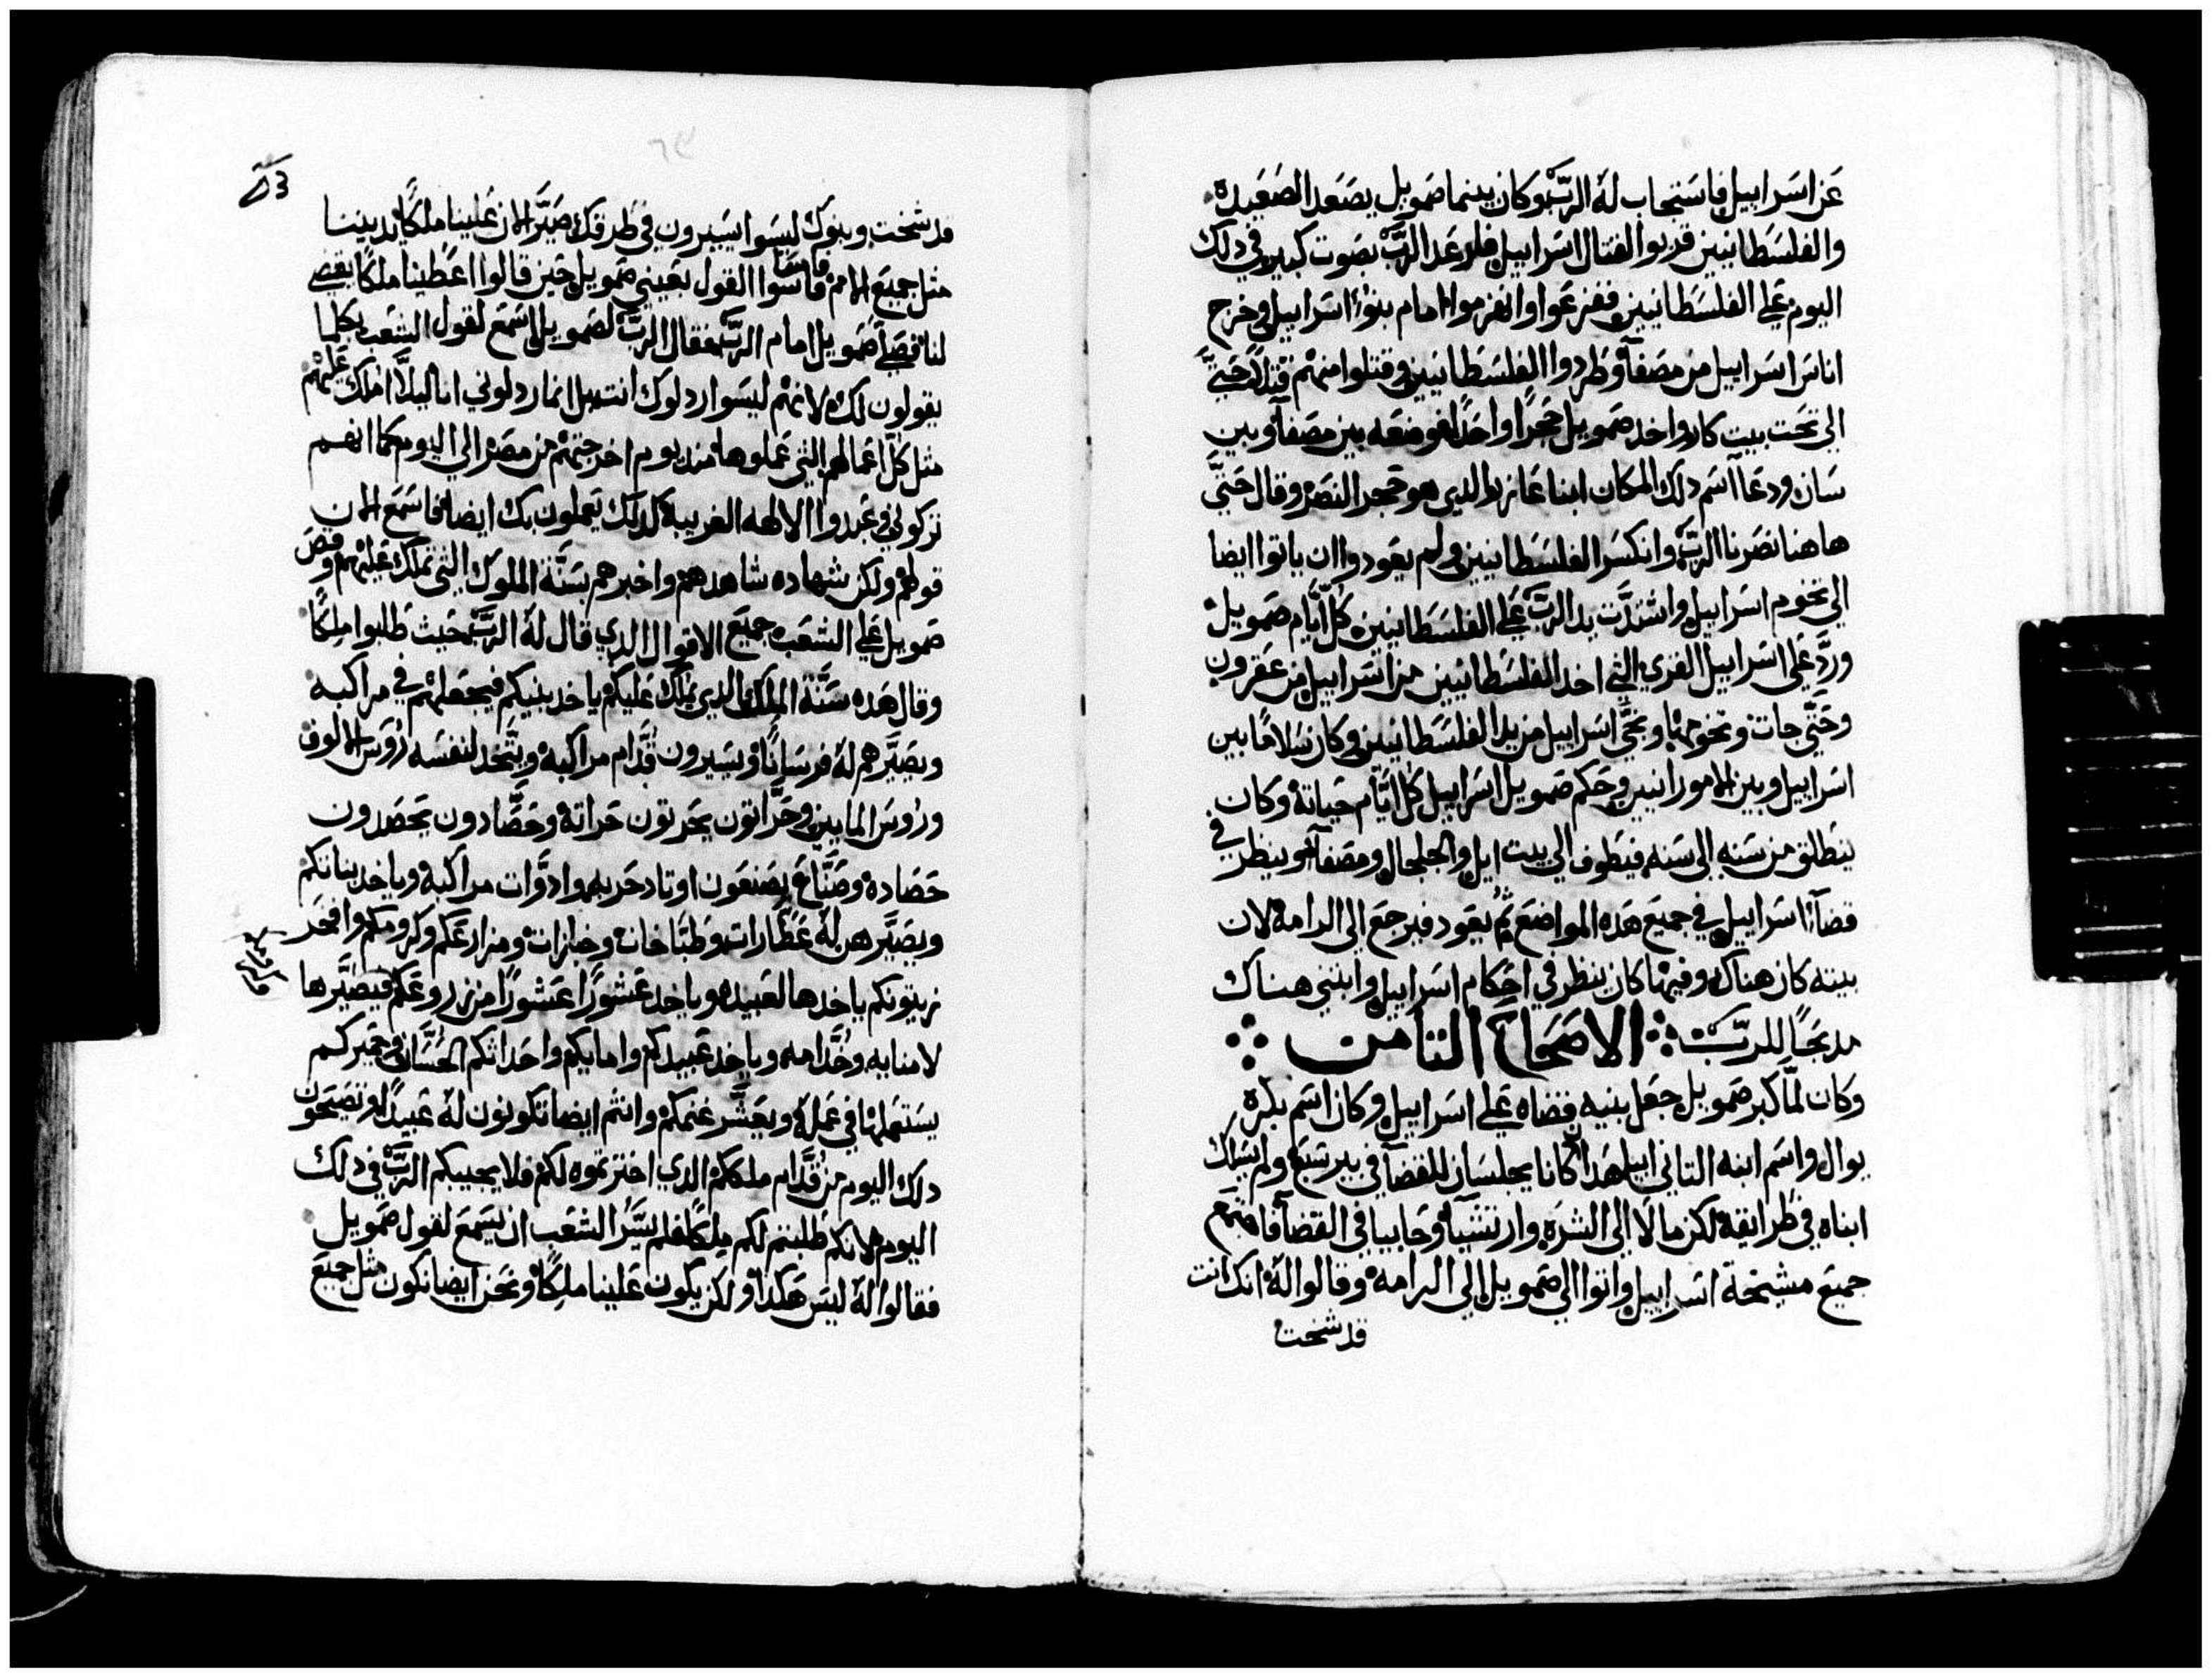 عن اسراييل فاستجاب له الرب وكان بينما صمويل يصعد الصعيده
والفلسطانيين قربوا لقتال اسراييل فارعد الرب بصوت كبير في دلك
اليوم علي الفلسطانيين ففزعوا وانهزموا امام بنوا اسراييل وخرج
اناس اسراييل من مصفآ وطردوا الفلسطانيين وقتلوا منهم قتلاً حتيَّ
الي تحت بيت كار واخد صمويل حجراً واحداً فوضعه بين مصفآ وبين
سان ودعا آسم دلك المكان ابنا عازر الدي هو حجر النصر وقال حتيَّ
هاهنا نصرنا الربّ وانكسر الفلسطانيين ولم يعودوا ان ياتوا ايضا
الي تخوم اسراييل واشتدَّت يد الربّ علي الفلسطانيين كل ايَّام صمويل
وردَّ علي اسراييل القري التي اخد الفلسطانيين من اسراييل من عقرون
وحتيَّ جات وتخومها ونجيَّ اسراييل من يد الفلسطانيين وكان سلامًا بين
اسراييل وبين الامورانيين وحكم صمويل اسراييل كل ايَّام حياته وكان
ينطلق من سنه الي سنه فيطوف الي بيت ايل والجلجال ومصفآ وينظر في
قضآ اسراييل في جميع هده المواضع ثم يعود فيرجع الي الرامه لان
بيته كان هناك وفيها كان ينظر في احكام اسراييل وابتني هناك
مدبحًا للربّ الاصحاح التامن
وكان لمَّا كبر صمويل جعل بنيه قضاه علي اسراييل وكان اسم بكره
يوال واسم ابنه التاني ابيا هدا كانا يجلسان للقضآ في بير شبع ولم يسلك
ابناه في طرايقه لكن مالا الي الشره وارتشيآ وحابيا في القضآ فاجتمع
جميع مشيخة اسراييل واتوا الي صمويل الي الرامه وقالوا له انك انت
قد شخت
قد شخت وبنوك ليسوا يسيرون في طرقك صيَّر الان علينا ملكًا يديننا
مثل جميع الامم فاسَوا القول بعيني صمويل حين قالوا اعطينا ملكًا يقضي
لنا فصلَّي صمويل امام الربّ فقال الربّ لصمويل اسمع لقول الشعب بكلما
يقولون لك لانهم ليسوا ردلوك انت بل انما ردلوني انا ليلاَّ املك عليهم
مثل كل اعمالهم التي عملوها مند يوم اخرجتهم من مصر الي اليوم كما انهم
تركوني وعبدوا الالهه الغريبة كدلك يعملون بك ايضا فاسمع الان
قولهم ولكن شهاده شاهدهم واخبرهم بسنَّة الملوك التي تملك عليهم وقص
صمويل علي الشعب جميع الاقوال الدي قال له الربّ حيث طلبوا ملكًا
وقال هده سنَّة الملك الدي يملك عليكم ياخد بنيكم فيجعلهم في مراكبه
ويصيَّرهم له فرسانًا ويسيرون قدَّام مراكبه ويتَّخد لنفسه رؤس الالوف
ورؤس المايين وحرَّاتون يحرتون حراته وحصَّادون يحصدون
حصاده وصنَّاع يصنعون اوتاد حربه وادوَّات مراكبه وياخد بناتكم
ويصيَّرهن له عطَّارات وطبَّاخات وخبازات ومزارعكم وكرومكم وافخر
زيتونكم ياخدها لعبيده وياخد عشورًا عشورًا من زروعكم فيصيَّرها
لامنايه وخدَّامه وياخد عبيدكم وامايكم واحداتكم الحسَّان وحميركم
يستعملها في عمله ويعشَّر غنمكم وانتم ايضا تكونون له عبيدًا وتصيحون
دلك اليوم من قدَّام ملككم الدي اخترتموه لكم فلا يجيبكم الربّ في دلك
اليوم لانكم طلبتم لكم ملكًا فلم يسَّر الشعب ان يسمع لقول صمويل
فقالوا له ليس هكدا ولكن يكون علينا ملكًا ونحن ايضا نكون مثل جميع